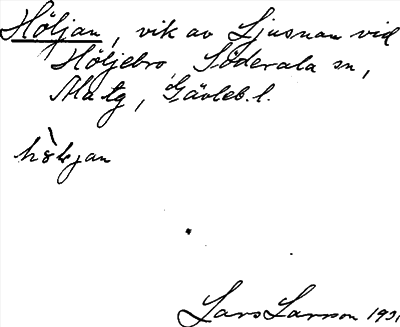 Höljan, vik av Ljusnan vid
Höljebro, Söderala sn,
Ala tg, Gävleb. l.
Lars Larsson 193